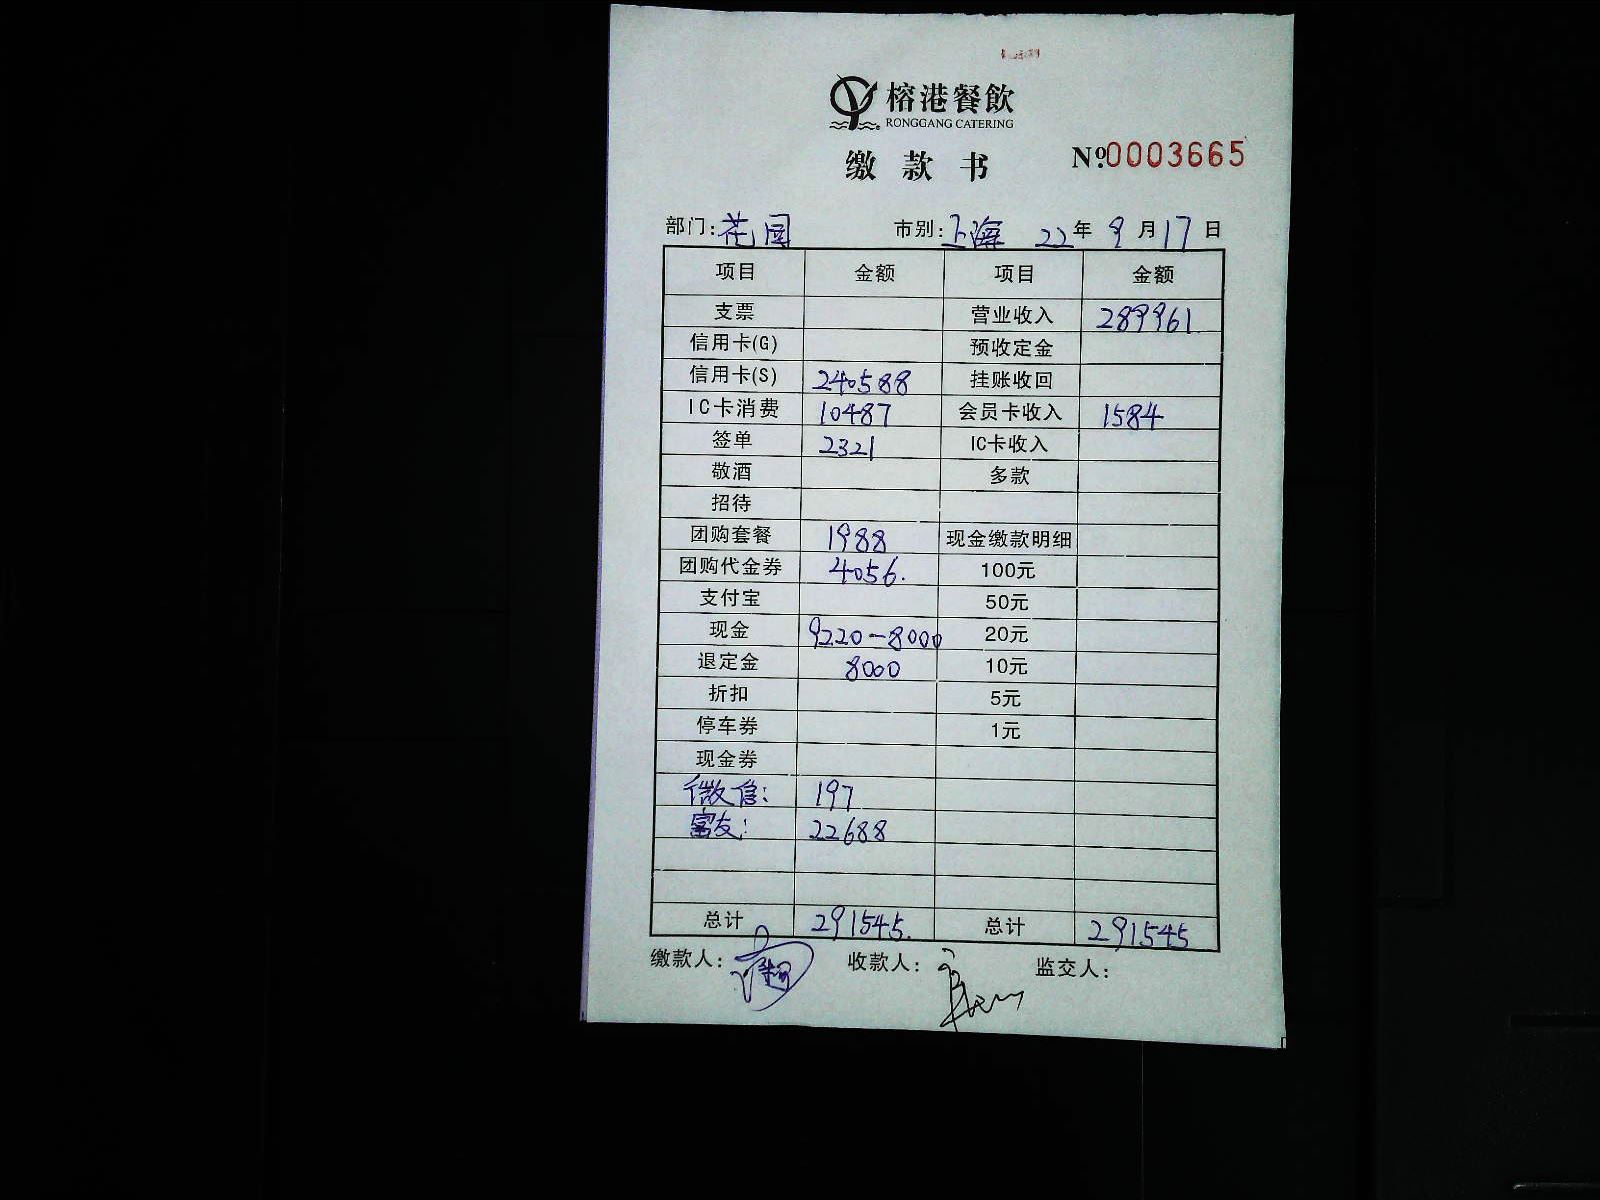 榕港餐飲
RONGGANG CATERING
缴款书 No.0003665
部门:花园 市别:上海 22年9月17日
项目 金额 项目 金额
支票 营业收入 289961
信用卡(G) 预收定金
信用卡(S) 240588 挂账收回
IC卡消费 10487 会员卡收入 1584
签单 2321 IC卡收入
敬酒 多款
招待
团购套餐 1988 现金缴款明细
团购代金券 4056. 100元
支付宝 50元
现金 9220-8000 20元
退定金 8000 10元
折扣 5元
停车券 1元
现金券
微信: 197
富友: 22688
总计 291545. 总计 291545
缴款人: 收款人: 监交人: